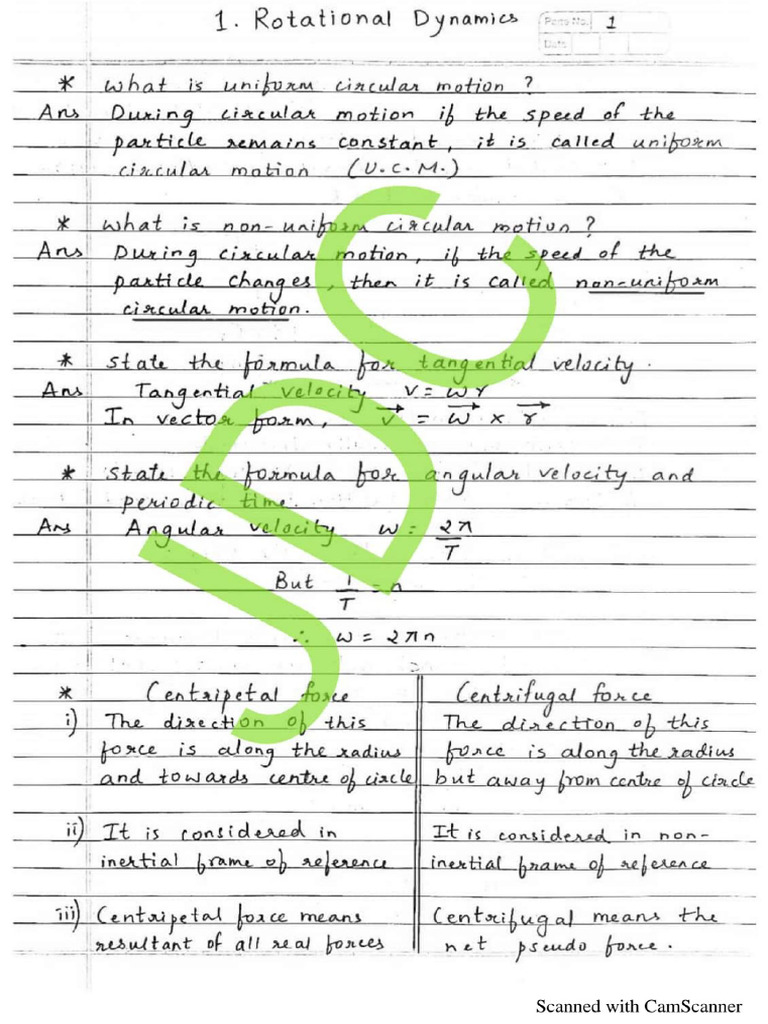 1. Rotational Dynamics
Page No. 1
Date
* What is uniform circular motion ?
Ans During circular motion if the speed of the
particle remains constant, it is called uniform
circular motion (U.C.M.)
* What is non-uniform circular motion ?
Ans During circular motion, if the speed of the
particle changes, then it is called non-uniform
circular motion.
* State the formula for tangential velocity.
Ans Tangential velocity v = ωr
In vector form, v⃗ = ω⃗ × r⃗
* State the formula for angular velocity and
periodic time.
Ans Angular velocity ω = 2π/T
But 1/T = n
∴ ω = 2πn
* Centripetal force
i) The direction of this
force is along the radius
and towards centre of circle
ii) It is considered in
inertial frame of reference
iii) Centripetal force means
resultant of all real forces
Centrifugal force
The direction of this
force is along the radius
but away from centre of circle
It is considered in non-
inertial frame of reference
Centrifugal means the
net pseudo force.
JDC
Scanned with CamScanner